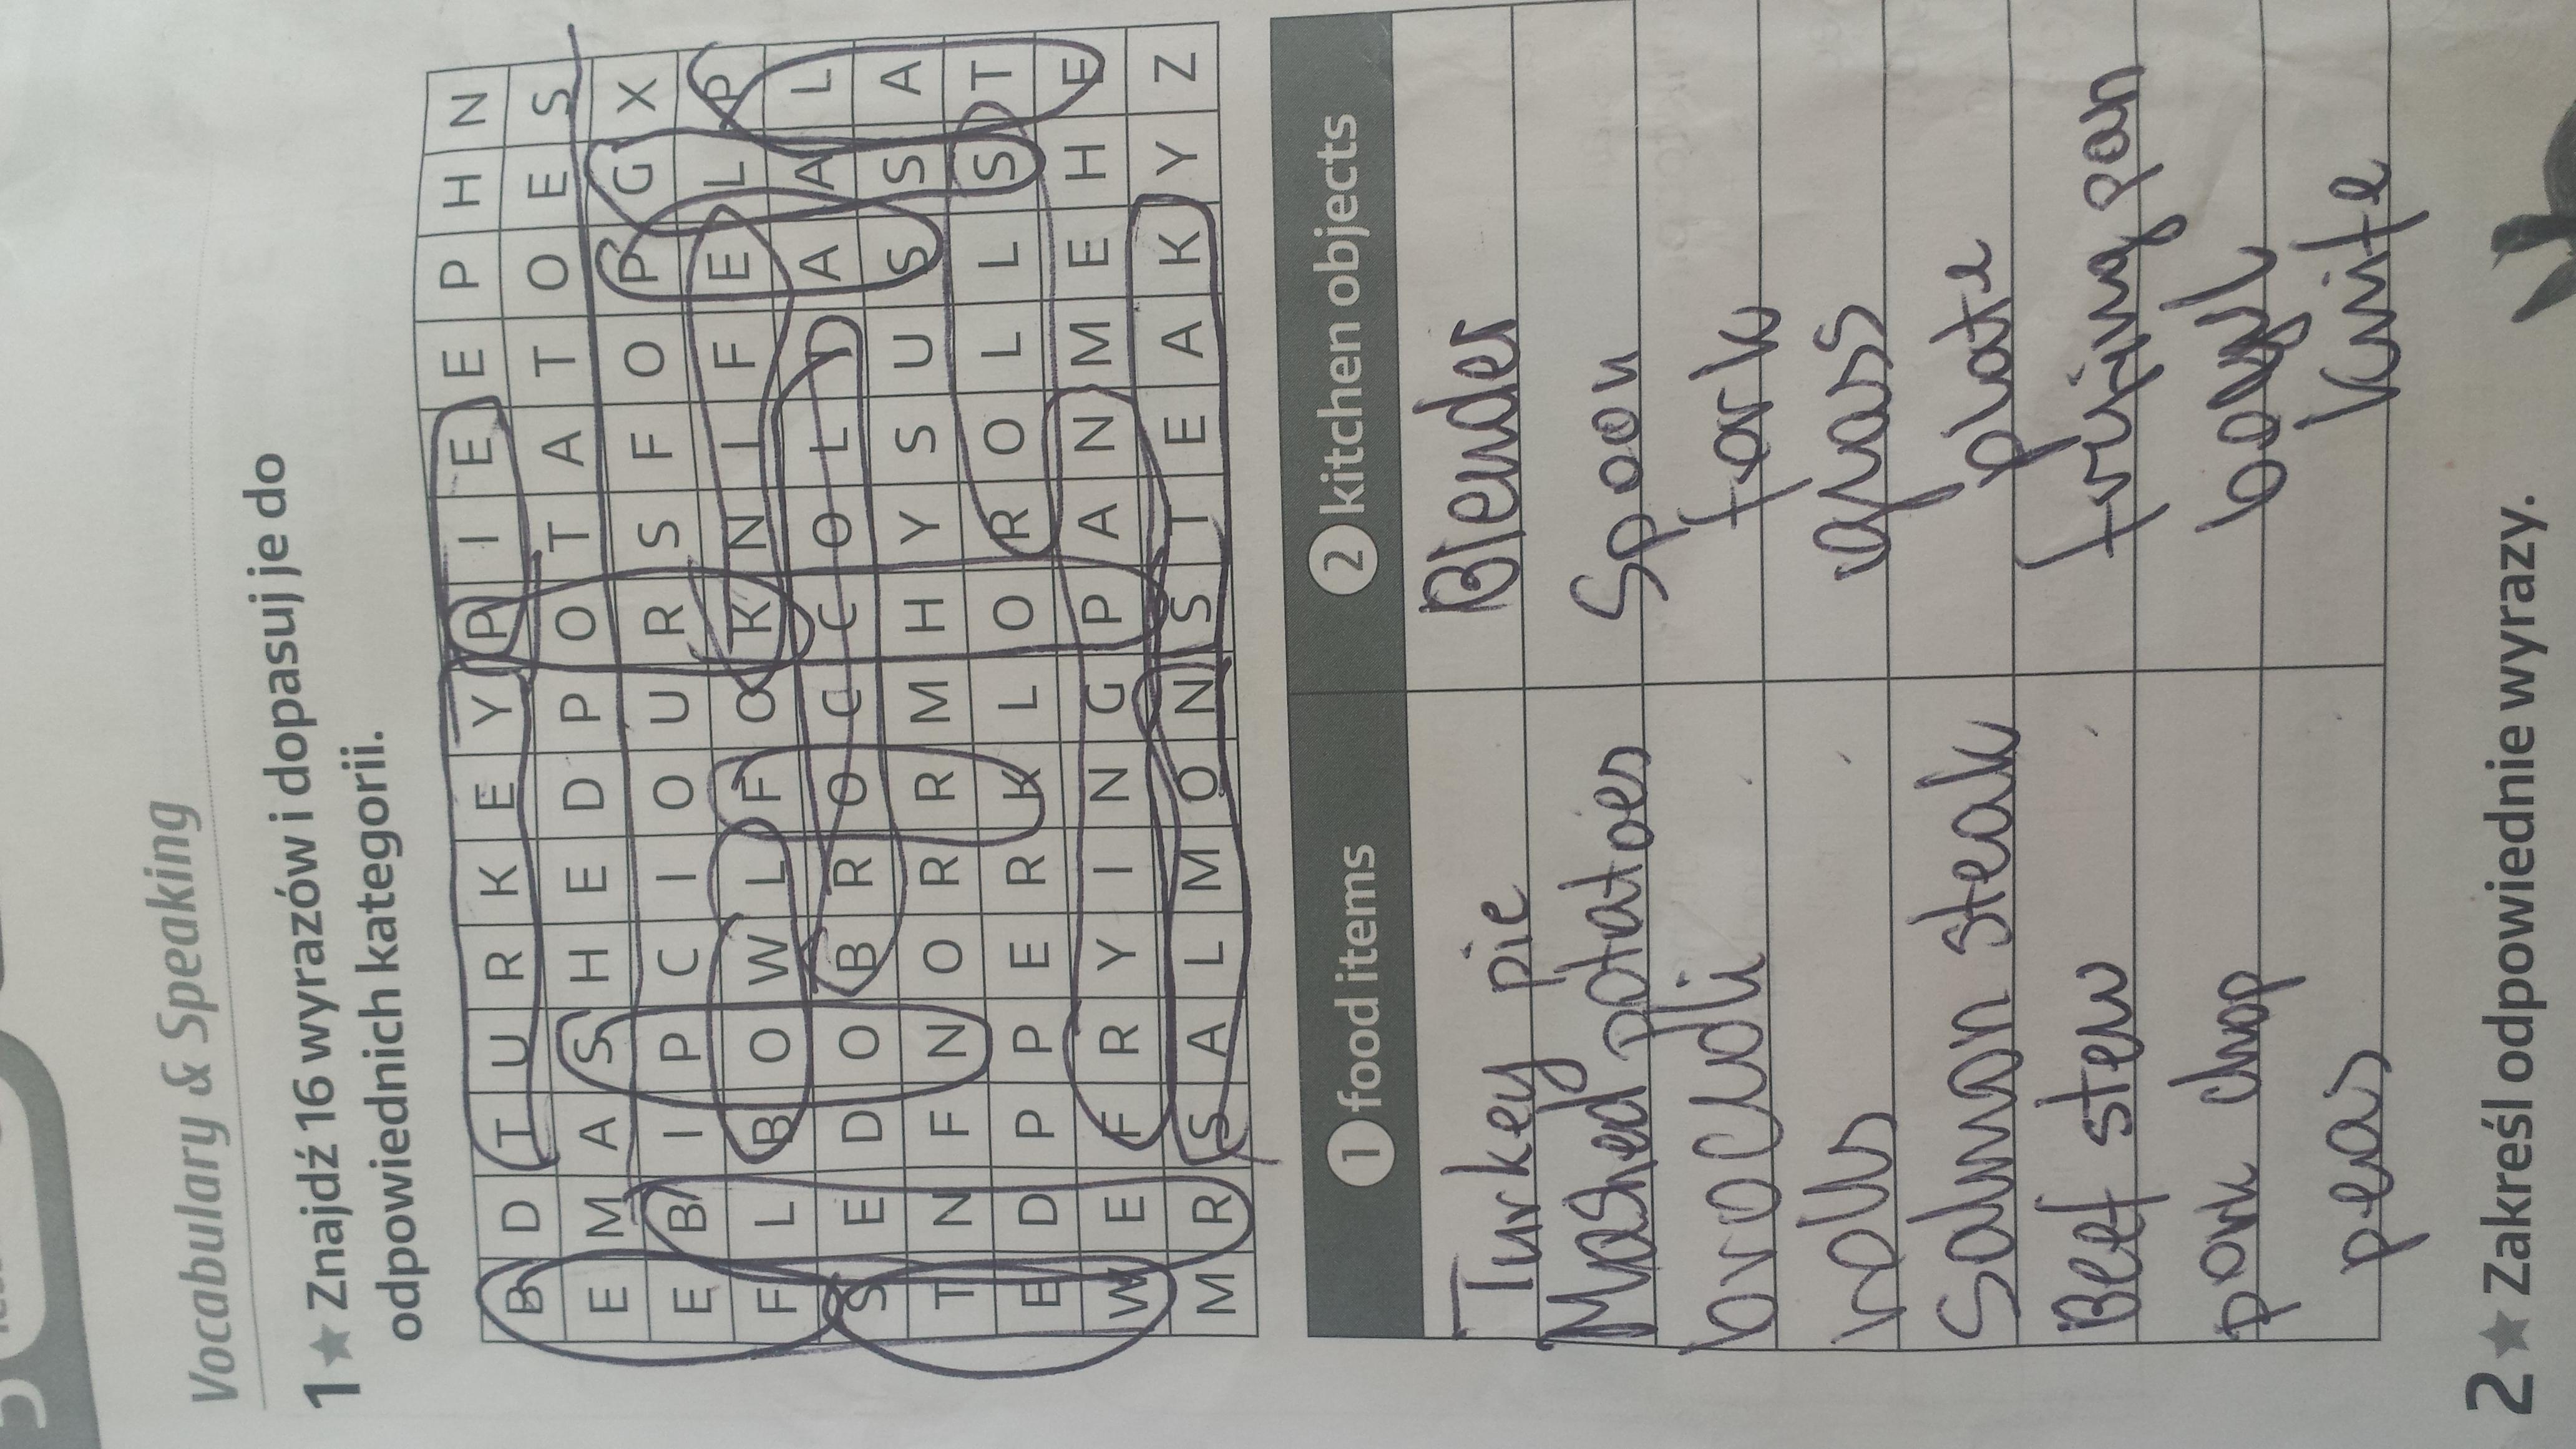 Vocabulary & Speaking
1 ★ Znajdź 16 wyrazów i dopasuj je do
odpowiednich kategorii.
B D T U R K E Y P I E E P H N
E M A S H E D P O T A T O E S
E B I P C I O U R S F O P G X
F L B O W L F O K N I F E L P
S E D O B R O C C O L I A A L
T N F N O R R M H Y S U S S A
E D P P E R K L O R O L L S T
W E F R Y I N G P A N M E H E
M R S A L M O N S T E A K Y Z
1 food items 2 kitchen objects
Turkey pie Blender
Mashed potatoes Spoon
broccoli fork
rolls glass
Salmon steak plate
Beef stew frying pan
pork chop bowl
peas knife
2 ★ Zakreśl odpowiednie wyrazy.